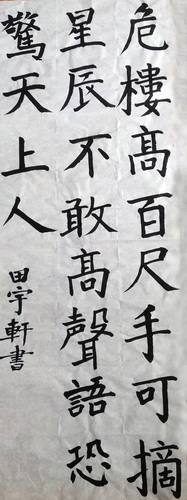 危樓髙百尺手可摘
星辰不敢髙聲語恐
驚天上人
田宇軒書